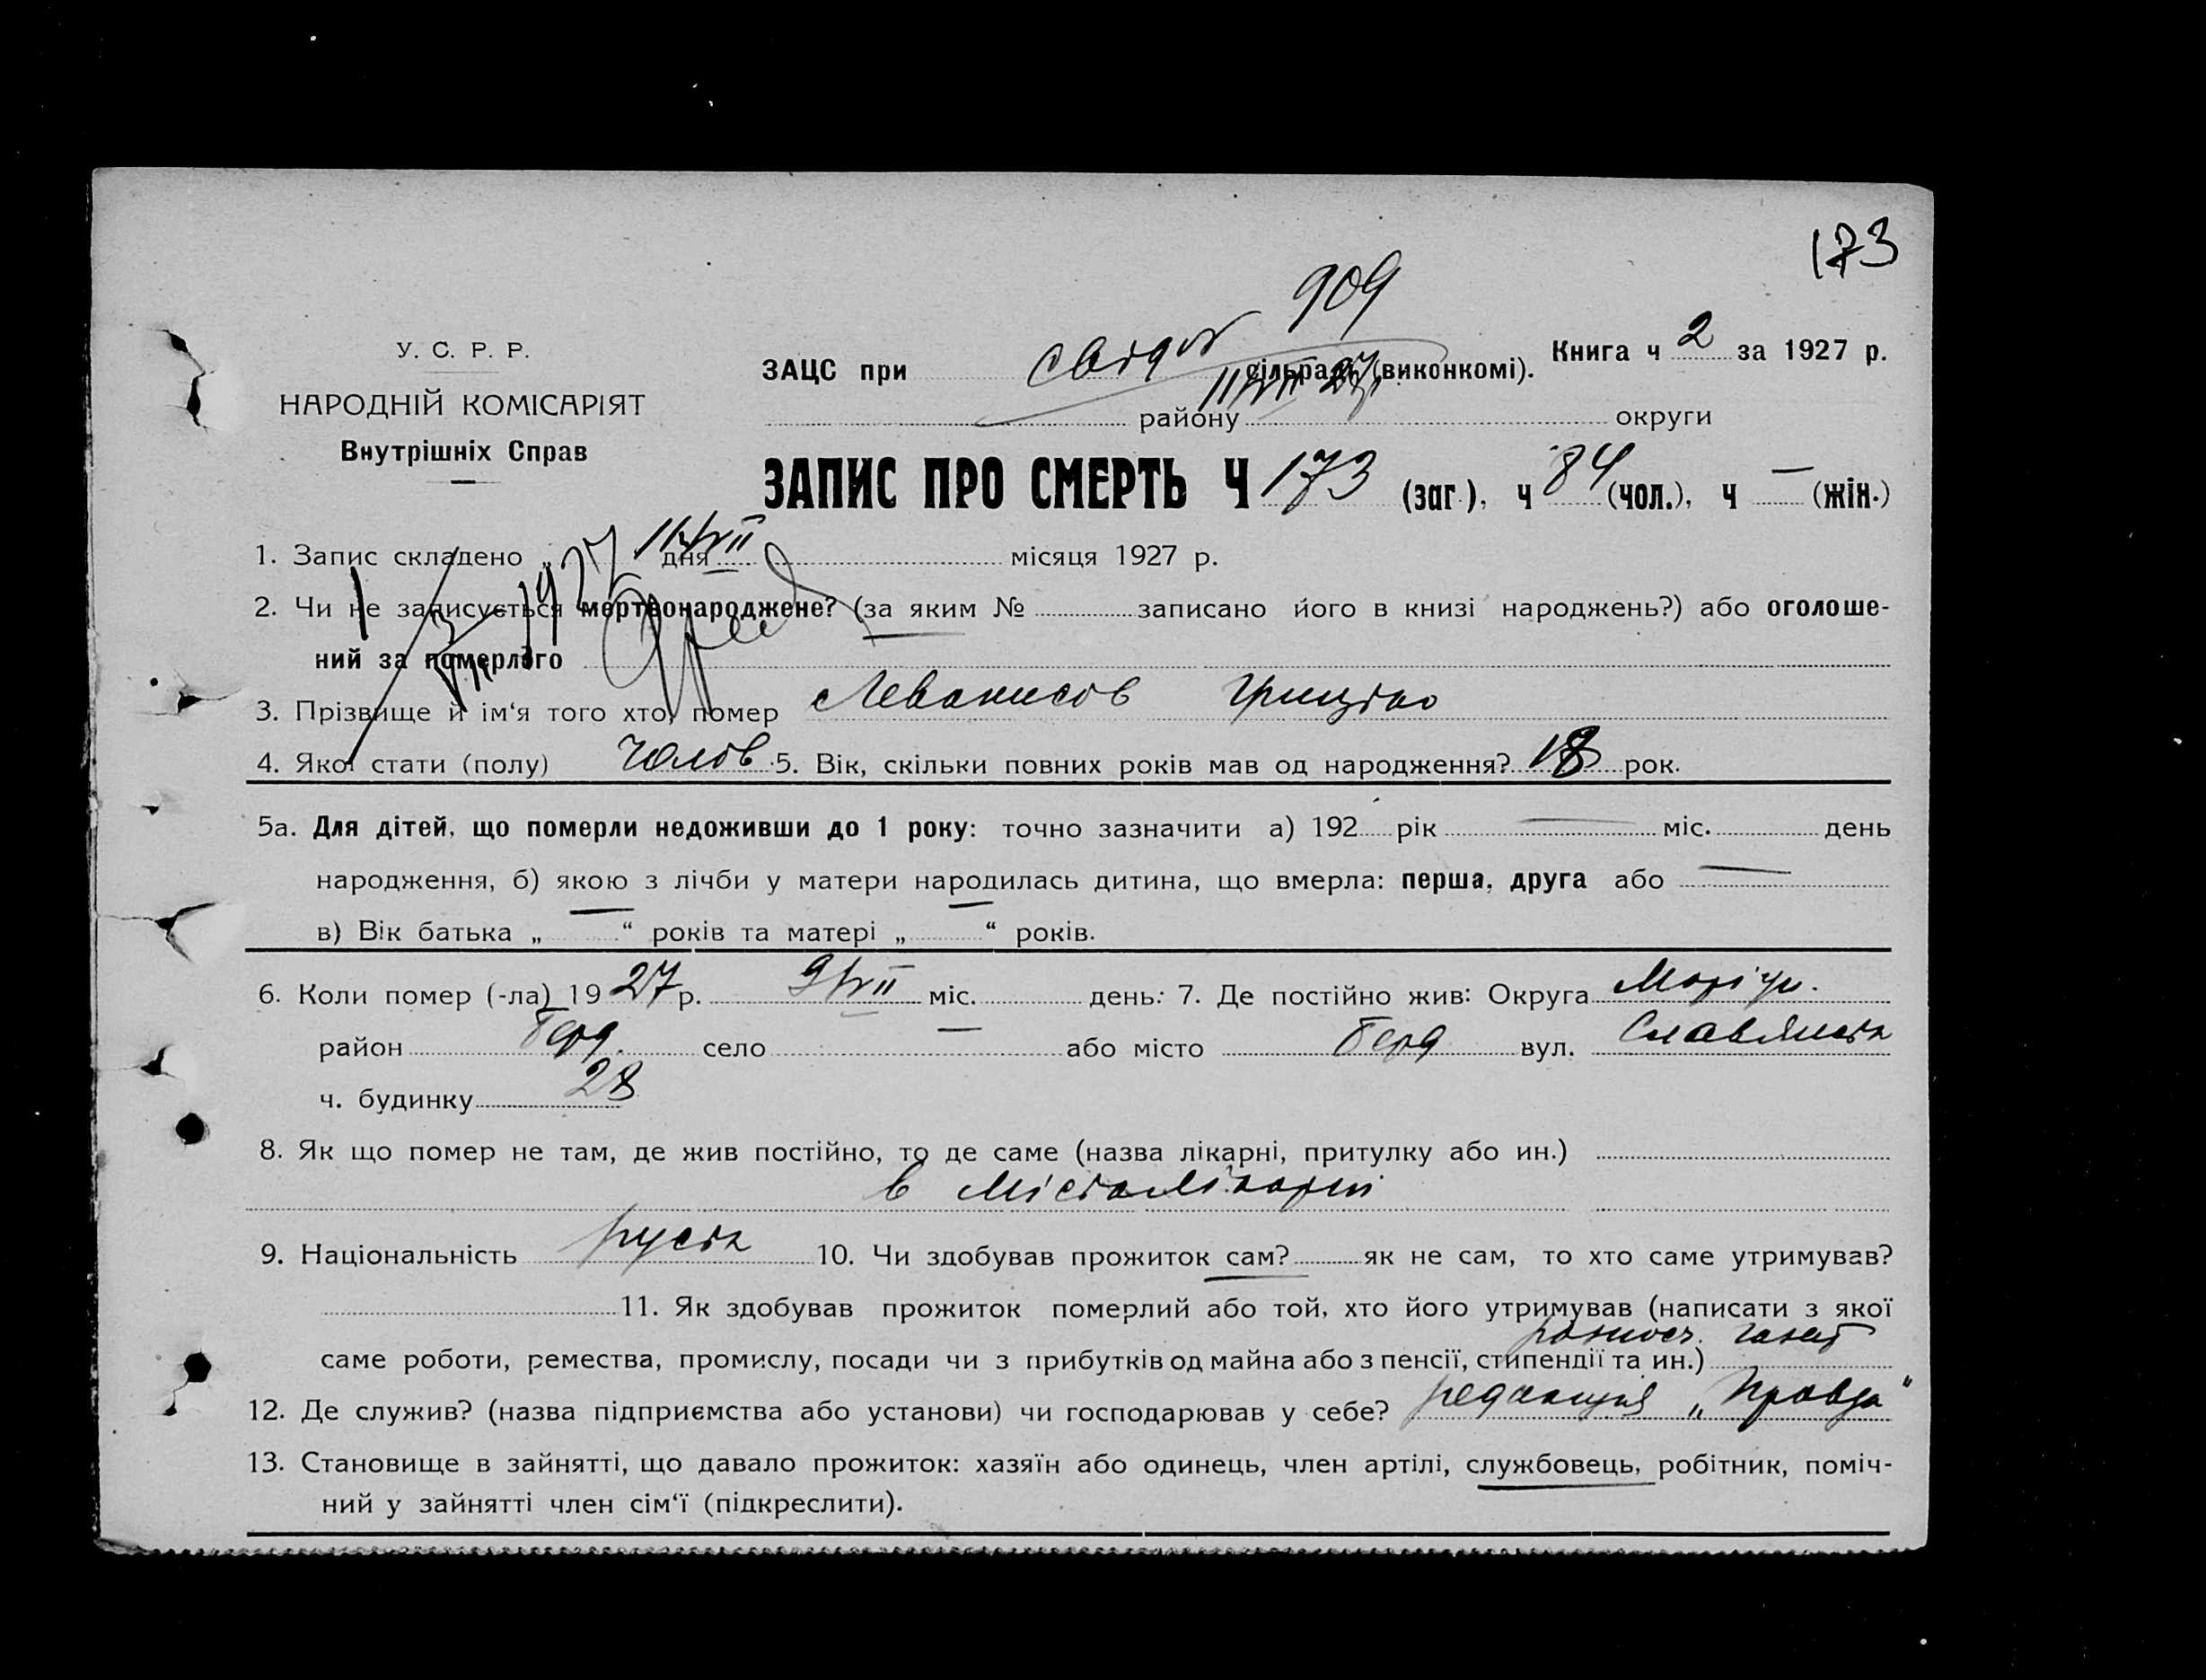 173
909
У. С. Р. Р.
НАРОДНІЙ КОМІСАРІЯТ
Внутрішніх Справ
ЗАЦС при сільраді (виконкомі). Книга ч 2 за 1927 р.
району округи
ЗАПИС ПРО СМЕРТЬ Ч 173 (заг.), ч 84 (чол.), ч — (жін.)
1. Запис складено „ 11/VII дня місяця 1927 р.
2. Чи не записується мертвонароджене? (за яким № записано його в книзі народжень?) або оголоше-
ний за померлого
3. Прізвище й ім‘я того хто, помер
4. Якої стати (полу) Чолов. 5. Вік, скільки повних років мав од народження? 18 рок.
5а. Для дітей, що померли недоживши до 1 року: точно зазначити а) 192 рік — міс. день
народження, б) якою з лічби у матери народилась дитина, що вмерла: перша, друга або —
в) Вік батька „ — “ років та матері „ — “ років.
6. Коли помер (-ла) 1927 р. 9/VII міс. день: 7. Де постійно жив: Округа Маріуп.
район Берд. село — або місто Берд вул.
ч. будинку 28
8. Як що помер не там, де жив постійно, то де саме (назва лікарні, притулку або ин.)
в
9. Національність руськ 10. Чи здобував прожиток сам? як не сам, то хто саме утримував?
11. Як здобував прожиток померлий або той, хто його утримував (написати з якої
саме роботи, ремества, промислу, посади чи з прибутків од майна або з пенсії, стипендії та ин.) разносч. газет
12. Де служив? (назва підприємства або установи) чи господарював у себе? редакция „Правда“
13. Становище в зайнятті, що давало прожиток: хазяїн або одинець, член артілі, службовець, робітник, поміч-
ний у зайнятті член сім‘ї (підкреслити).